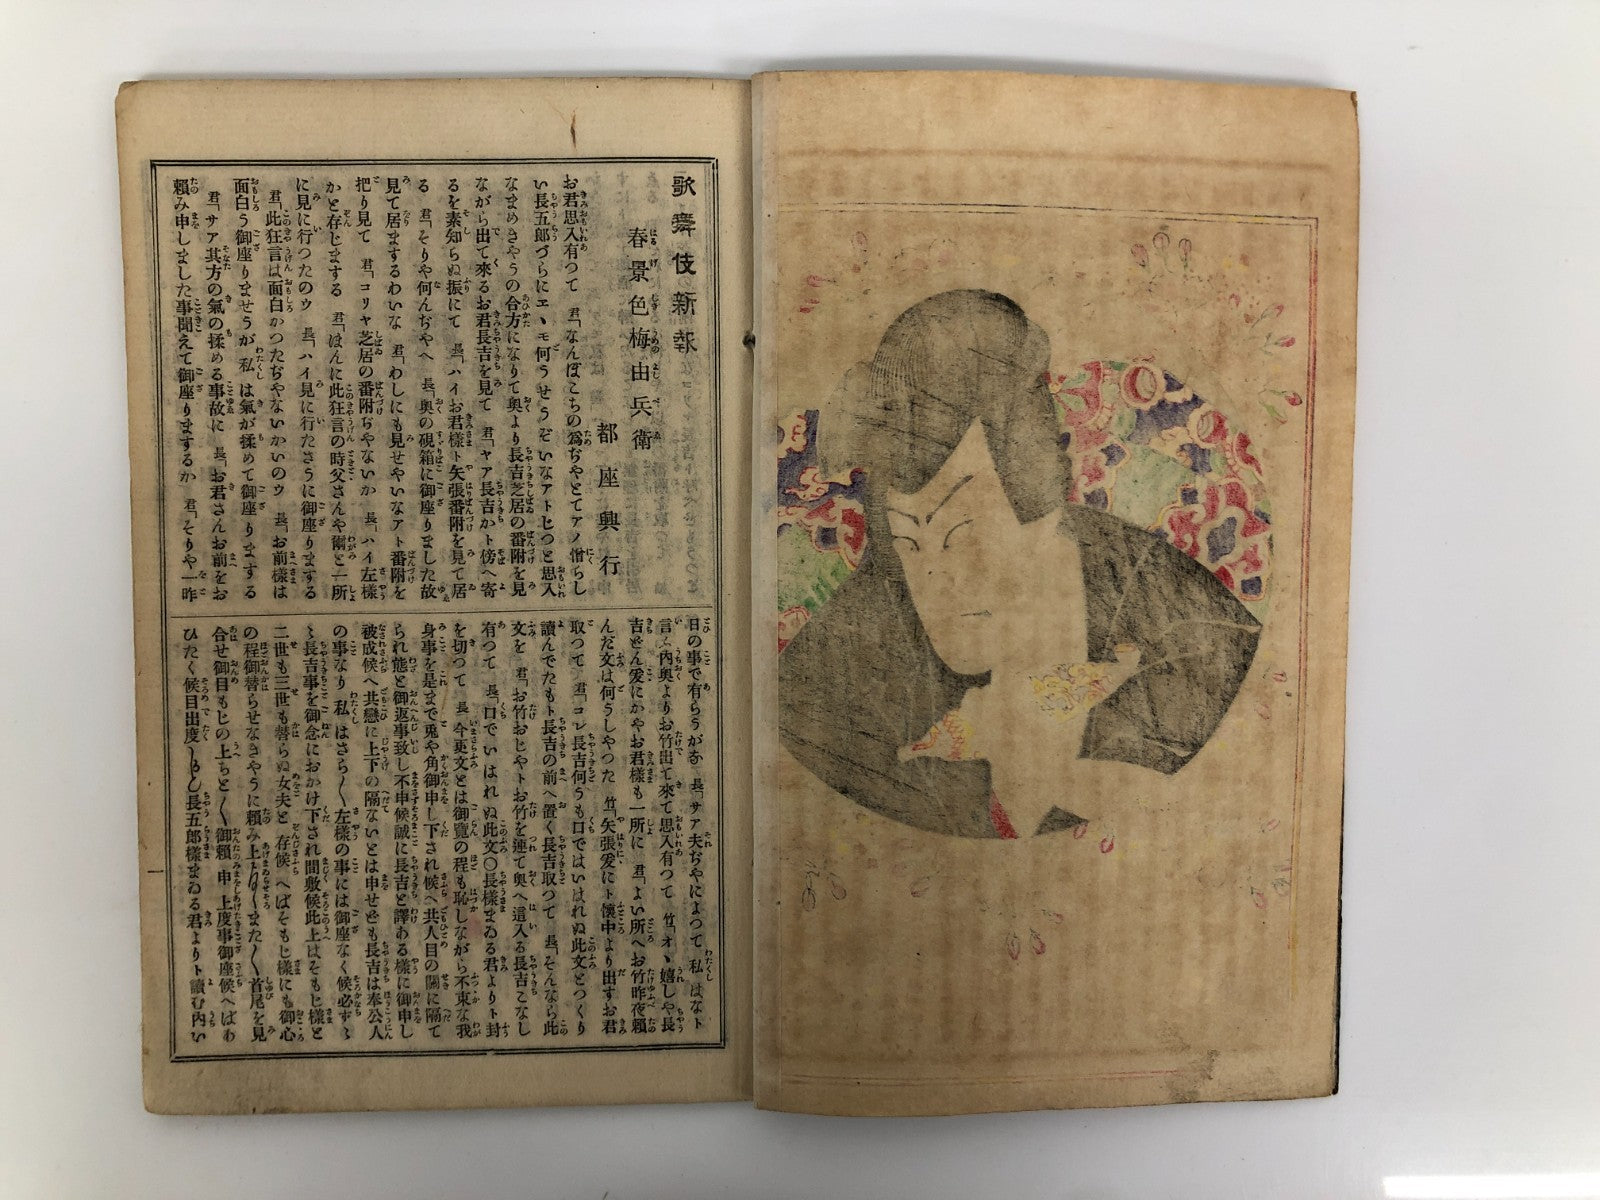 歌舞伎新報
春景色梅由兵衛
都座興行
お君思入有つて 君「なんぼこちの爲ぢやとてアノ僧らし
い長五郎づらにエヽモ何うせうぞいなアトじつと思入
なまめきやうの合方になりて奥より長吉芝居の番附を見
ながら出て來るお君長吉を見て 君「ヤア長吉かト傍へ寄
るを素知らぬ振にて 長「ハイお君樣ト矢張番附を見て居
る 君「そりや何んぢやへ 長「奥の硯箱に御座りました故
見て居まするわいな 君「わしにも見せやいなアト番附を
把り見て 君「コリヤ芝居の番附ぢやないか 長「ハイ左樣
かと存じまする 君「ほんに此狂言の時父さんや爾と一所
に見に行つたのウ 長「ハイ見に行たさうに御座りまする
君「此狂言は面白かつたぢやないかいのウ 長「お前樣は
面白う御座りませうが私は氣が揉めて御座りまする
君「サア其方の氣の揉める事故に 長「お君さんお前をお
頼み申しました事聞えて御座りまするか 君「そりや一昨
日の事で有らうがな 長「サア夫ぢやによつて私はなト
言ふ内奥よりお竹出て來て思入有つて 竹「オヽ嬉しや長
吉どん爰にかやお君樣も一所に 君「よい所へお竹昨夜頼
んだ文は何うしやつた 竹「矢張爰にト懷中より出すお君
取つて 君「コレ長吉何うも口ではいはれぬ此文とつくり
讀んでたもト長吉の前へ置く長吉取つて 長「そんなら此
文を 君「お竹おじやトお竹を連て奥へ這入る長吉こなし
有つて 長「口でいはれぬ此文〇長樣まゐる君よりト封
を切つて 長「今更文とは御覽の程も恥しながら不束な我
身事を是まで兎や角御申し下され候へ共人目の關に隔て
られ態と御返事致し不申候誠に長吉と譯ある樣に御申し
被成候へ共戀に上下の隔ないとは申せども長吉は奉公人
の事なり私はさら〱左樣の事には御座なく候必ずヽ
ヽ長吉事を御念におかけ下され間敷候此上はそもじ樣と
二世も三世も替らぬ女夫と存候へばそもじ樣にも御心
の程御替らせなきやうに頼み上〱また〱首尾を見
合せ御目もじの上ちと〱御頼申上度事御座候へばあ
ひたく候目出度〱かしく長五郎樣まゐる君よりト讀む内い